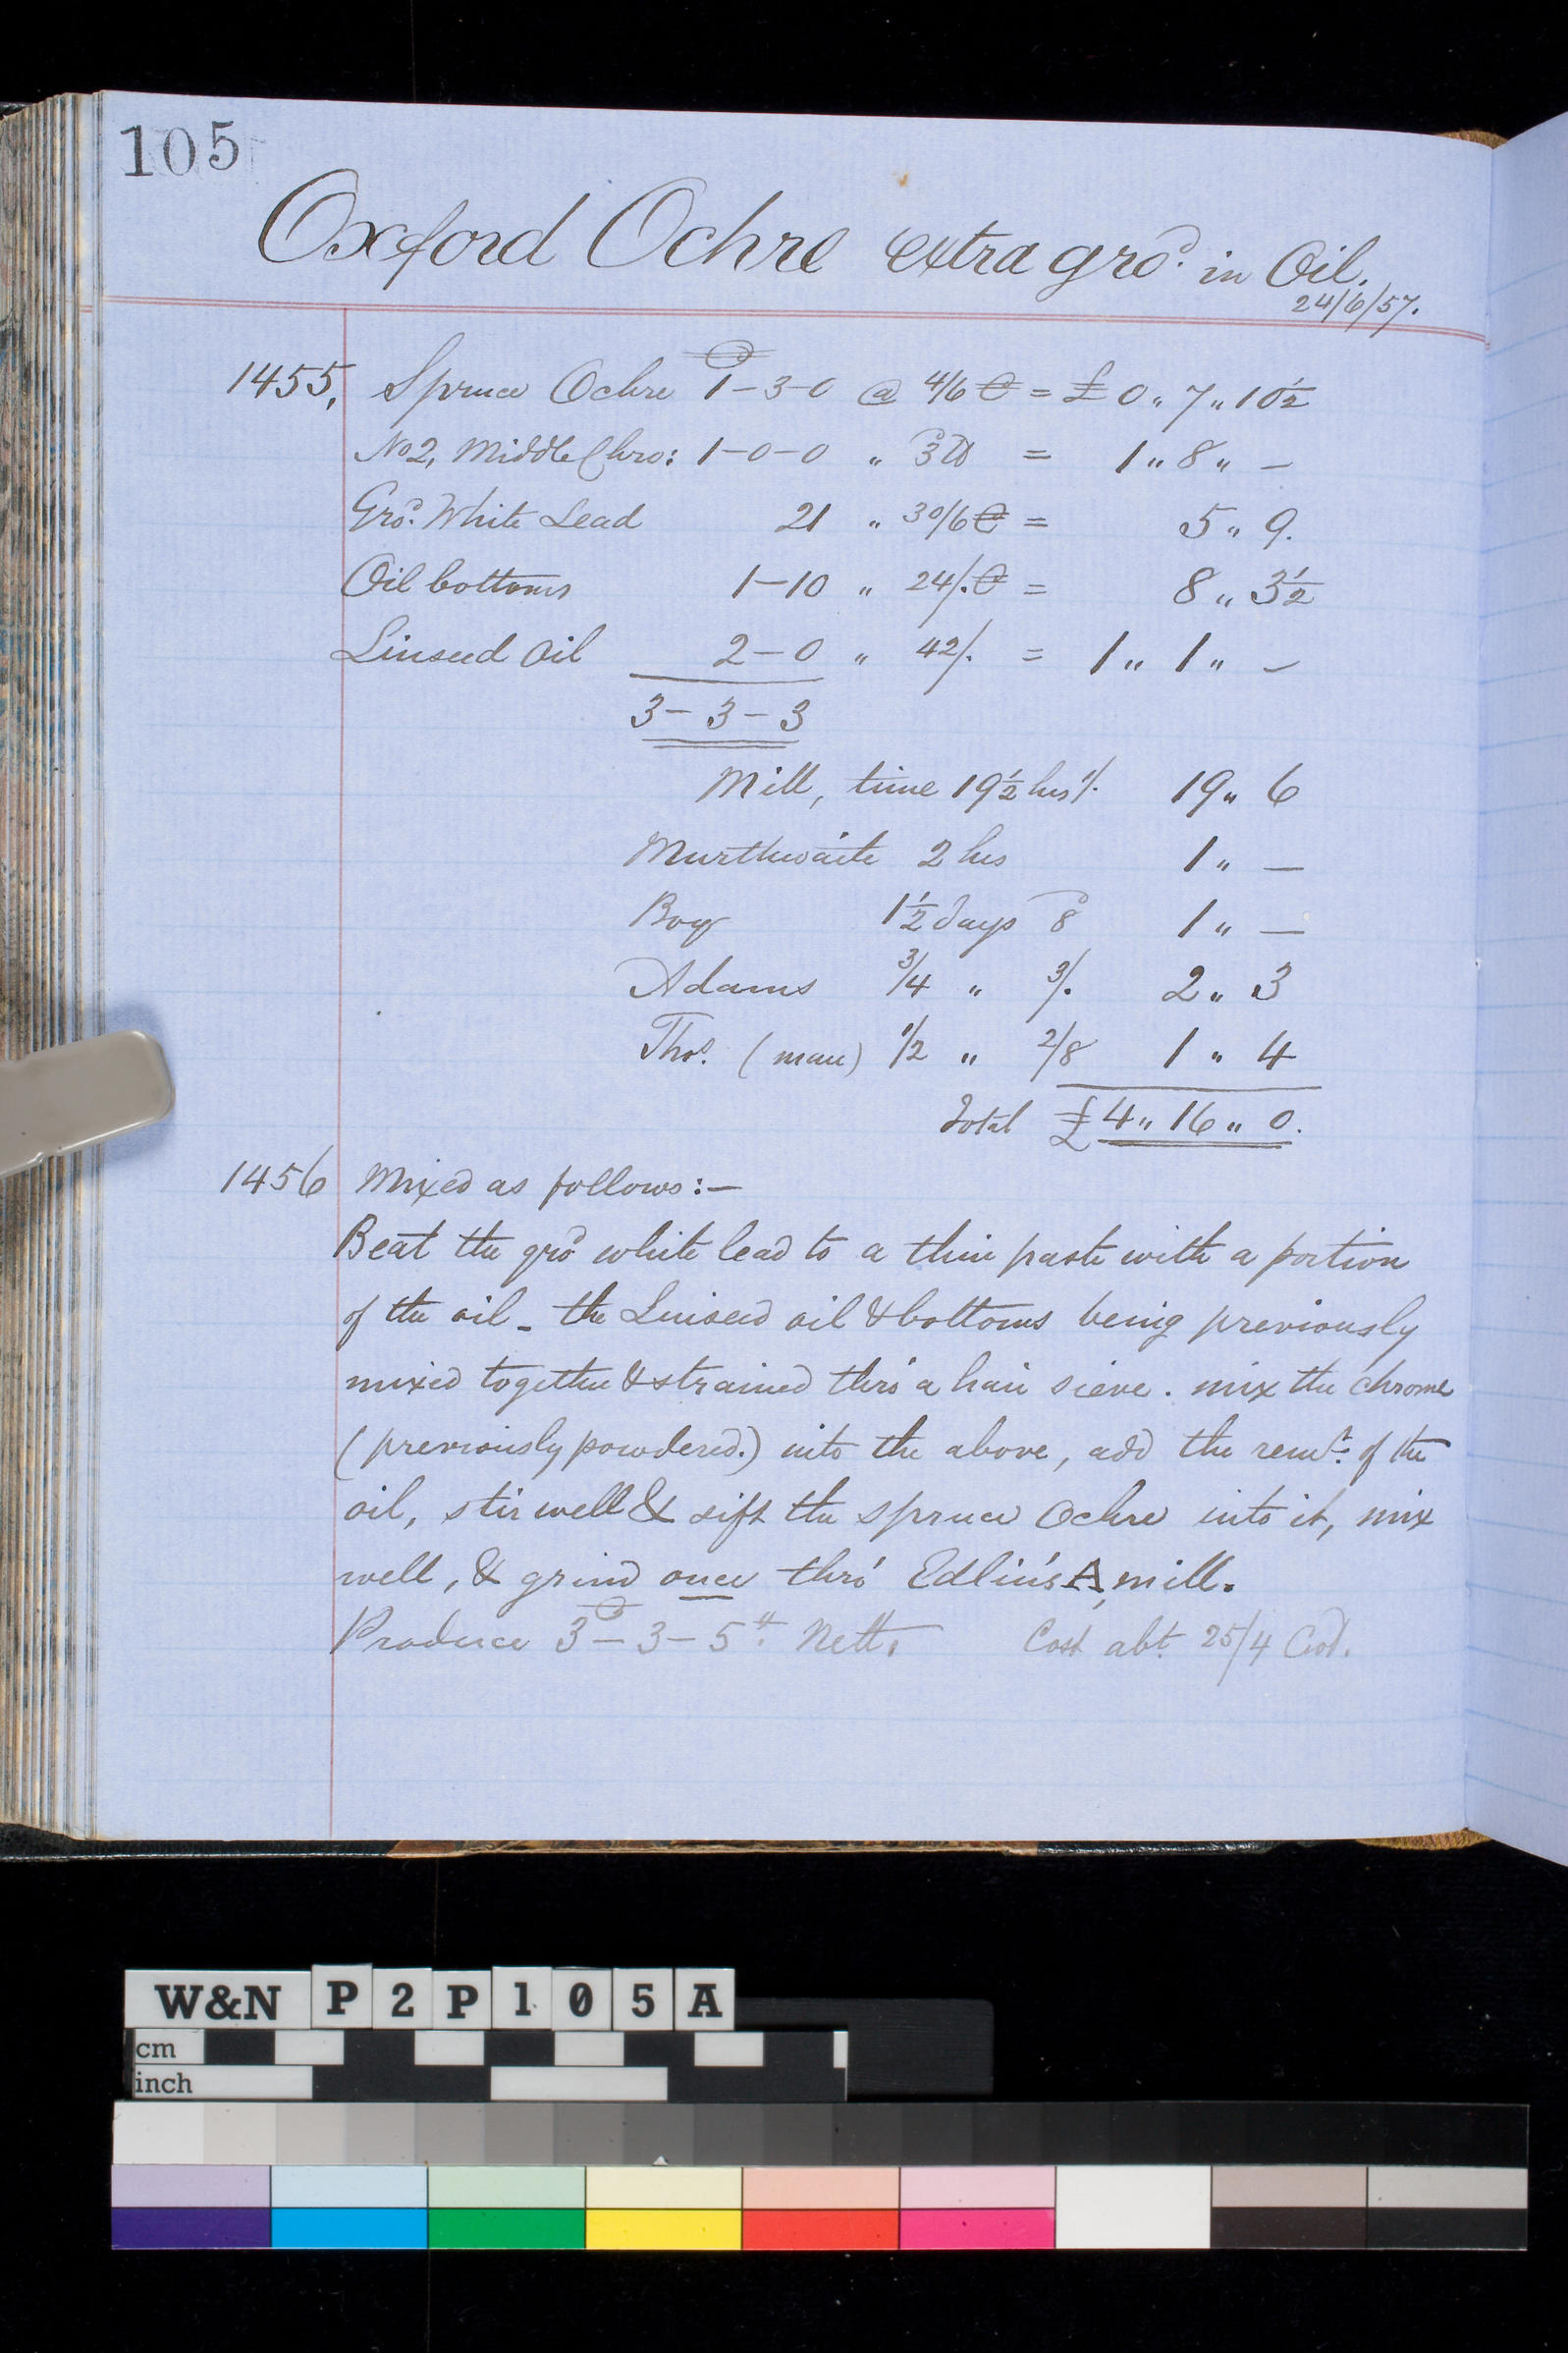 105
Oxford Ochre extra gro^d. in Oil.
24/6/57.
1455, Spruce Ochre 1-3-0 @ 4/6 = £0 " 7 " 10½
No 2, Middle Chro: 1-0-0 " 3^d = 1 " 8 " —
Gro^d. White Lead 21 " 30/6 = 5 " 9.
Oil bottoms 1-10 " 24/. = 8 " 3½
Linseed Oil 2-0 " 42/. = 1 " 1 " —
3-3-3
Mill, time 19½ hrs 1/. 19 " 6
Murthwaite 2 hrs 1 " —
Boy 1½ days 8^d 1 " —
Adams 3/4 " 3/. 2 " 3
Tho^s. (man) 1/2 " 2/8 1 " 4
Total £4 " 16 " 0.
1456 Mixed as follows:—
Beat the gro^d white lead to a thin paste with a portion
of the oil - the Linseed oil & bottoms being previously
mixed together & strained thro' a hair sieve. mix the chrome
(previously powdered.) into the above, add the rem^r. of the
oil, stir well & sift the spruce Ochre into it, mix
well, & grind once thro' Edlin's A, mill.
Produce 3-3-5 Nett. Cost abt. 25/4 Cwt.
W&N P2P105A
cm
inch